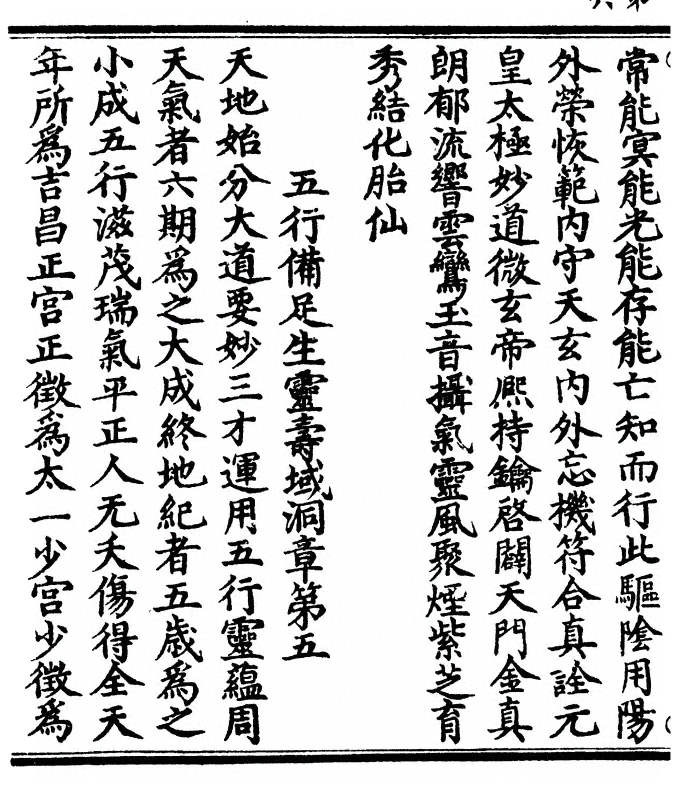 常能㝠能光能存能亡知而行此驅陰用陽
外榮恢範内守天玄内外忘機符合真詮元
皇太極妙道微玄帝熈持鑰啓闢天門金真
朗郁流響雲鸞玉音攝氣靈風聚煙紫芝育
秀結化胎仙
五行備足生靈壽域洞章第五
天地始分大道要妙三才運用五行靈蘊周
天氣者六期爲之大成終地紀者五歳爲之
小成五行滋茂瑞氣平正人无夭傷得全天
年所爲吉昌正宫正徵爲太一少宫少徵爲